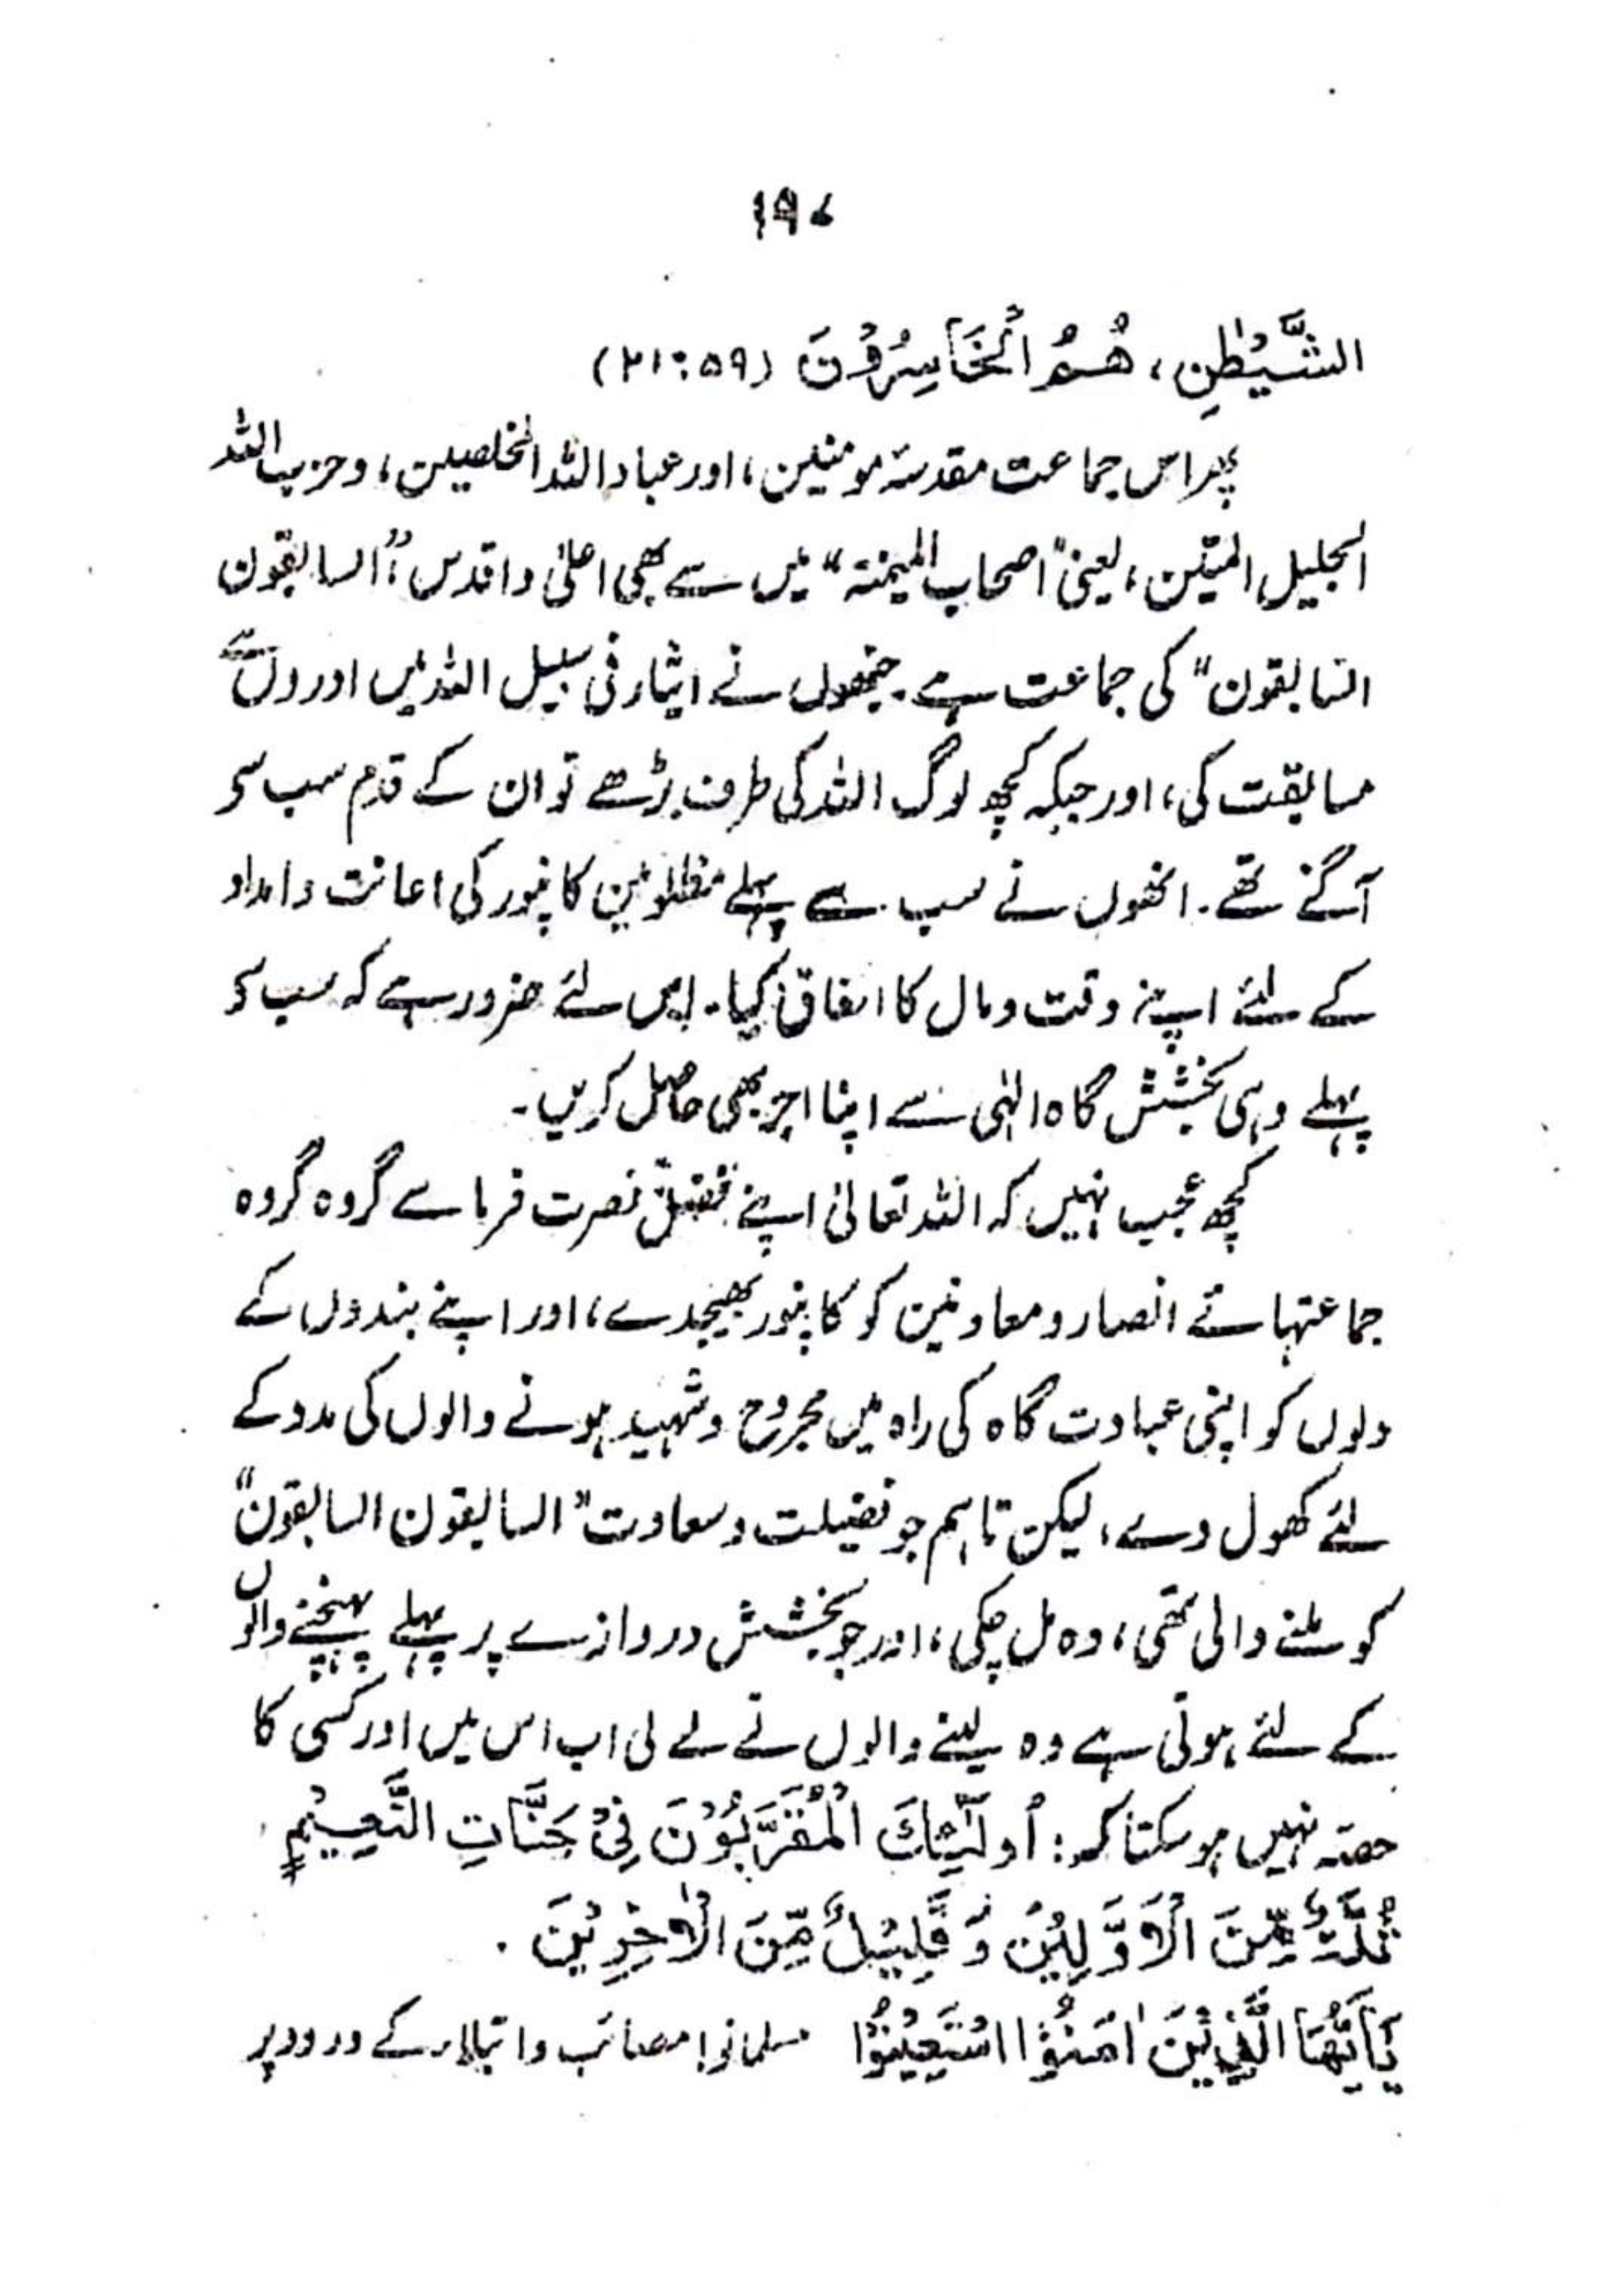 ۱۹۷
الشَّیْطٰنِ، هُمُ الْخَاسِرُوْنَ (۵۹ : ۲۱)
پھر اس جماعت مقدسۂ مومنین، اور عباد اللہ المخلصین، و حزب اللہ
الجلیل المتین، یعنی "اصحاب المیمنۃ" میں سے بھی اعلیٰ و اقدس، "السابقون
السابقون" کی جماعت ہے۔ جنھوں نے ایثار فی سبیل اللہ میں اوروں سے
مسابقت کی، اور جبکہ کچھ لوگ اللہ کی طرف بڑھے تو ان کے قدم سب سے
آگے تھے۔ انھوں نے سب سے پہلے مظلومین کانپور کی اعانت و امداد
کے لئے اپنے وقت و مال کا انفاق کیا۔ اس لئے ضرور ہے کہ سب سے
پہلے وہی بخشش گاہ الٰہی سے اپنا اجر بھی حاصل کریں۔
کچھ عجب نہیں کہ اللہ تعالیٰ اپنے نصرت فرما سے گروہ گروہ
جماعتہائے انصار و معاونین کو کانپور بھیجدے، اور اپنے بندوں کے
دلوں کو اپنی عبادت گاہ کی راہ میں مجروح و شہید ہونے والوں کی مدد کے
لئے کھول دے، لیکن تاہم جو فضیلت و سعادت "السابقون السابقون"
کو ملنے والی تھی، وہ مل چکی، اور جو بخشش دروازے پر پہلے پہنچنے والوں
کے لئے ہوتی ہے وہ لینے والوں نے لے لی اب اس میں اور کسی کا
حصہ نہیں ہو سکتا کہ: اُولٰٓئِکَ الْمُقَرَّبُوْنَ فِیْ جَنّٰتِ النَّعِیْمِ
ثُلَّۃٌ مِّنَ الْاَوَّلِیْنَ وَ قَلِیْلٌ مِّنَ الْاٰخِرِیْنَ۔
یٰٓاَیُّهَا الَّذِیْنَ اٰمَنُوْا اسْتَعِیْنُوْا مسلمانو! مصائب و ابتلاء کے ورود پر